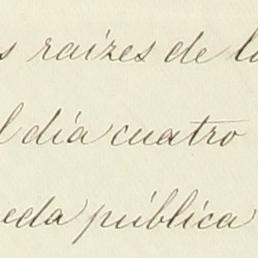 s raízes de l
l día cuatro
eda pública